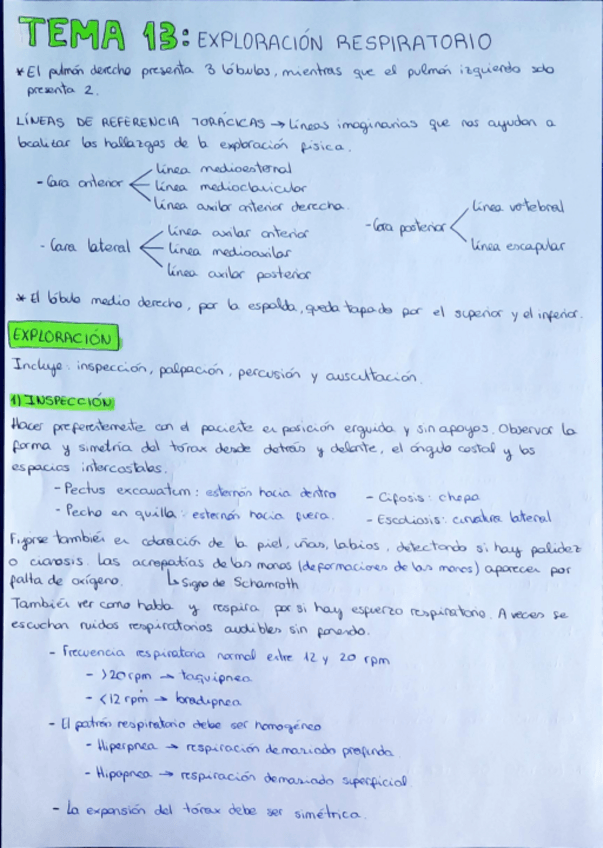 TEMA 13: EXPLORACIÓN RESPIRATORIO
* El pulmón derecho presenta 3 lóbulos, mientras que el pulmón izquierdo solo
presenta 2.
LÍNEAS DE REFERENCIA TORÁCICAS → Líneas imaginarias que nos ayudan a
localizar los hallazgos de la exploración física.
- Cara anterior
línea medioesternal
línea medioclavicular
línea axilar anterior derecha.
- Cara lateral
línea axilar anterior
línea medioaxilar
línea axilar posterior
- Cara posterior
línea vertebral
línea escapular
* El lóbulo medio derecho, por la espalda, queda tapado por el superior y el inferior.
EXPLORACIÓN
Incluye: inspección, palpación, percusión y auscultación.
1) INSPECCIÓN
Hacer preferentemente con el paciente en posición erguida y sin apoyos. Observar la
forma y simetría del tórax desde detrás y delante, el ángulo costal y los
espacios intercostales.
- Pectus excavatum: esternón hacia dentro
- Pecho en quilla: esternón hacia fuera.
- Cifosis: chepa
- Escoliosis: curvatura lateral
Fijarse también en coloración de la piel, uñas, labios, detectando si hay palidez
o cianosis. Las acropatías de las manos (deformaciones de las manos) aparecen por
falta de oxígeno. ↳ Signo de Schamroth
También ver como habla y respira, por si hay esfuerzo respiratorio. A veces se
escuchan ruidos respiratorios audibles sin fonendo.
- Frecuencia respiratoria normal entre 12 y 20 rpm
- >20 rpm → taquipnea
- <12 rpm → bradipnea
- El patrón respiratorio debe ser homogéneo
- Hiperpnea → respiración demasiado profunda.
- Hipopnea → respiración demasiado superficial.
- La expansión del tórax debe ser simétrica.